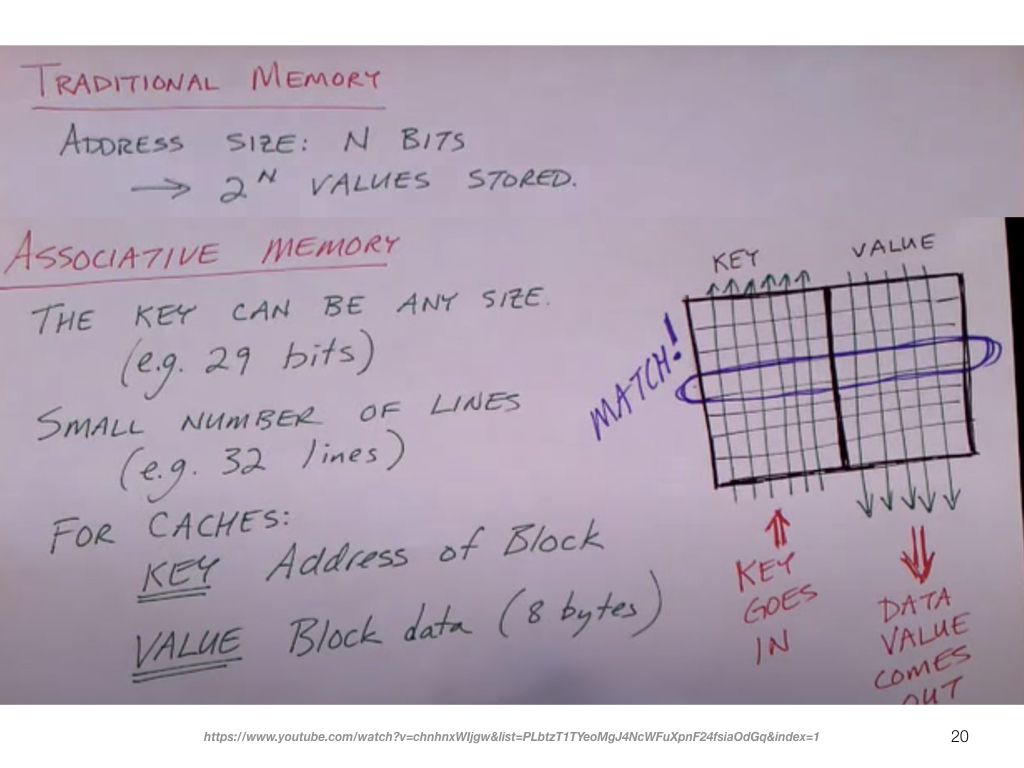 TRADITIONAL MEMORY
ADDRESS SIZE: N BITS
→ 2^N VALUES STORED.
ASSOCIATIVE MEMORY
THE KEY CAN BE ANY SIZE.
(e.g. 29 bits)
SMALL NUMBER OF LINES
(e.g. 32 lines)
FOR CACHES:
KEY Address of Block
VALUE Block data (8 bytes)
KEY VALUE
MATCH!
KEY
GOES
IN
DATA
VALUE
COMES
OUT
https://www.youtube.com/watch?v=chnhnxWljgw&list=PLbtzT1TYeoMgJ4NcWFuXpnF24fsiaOdGq&index=1
20